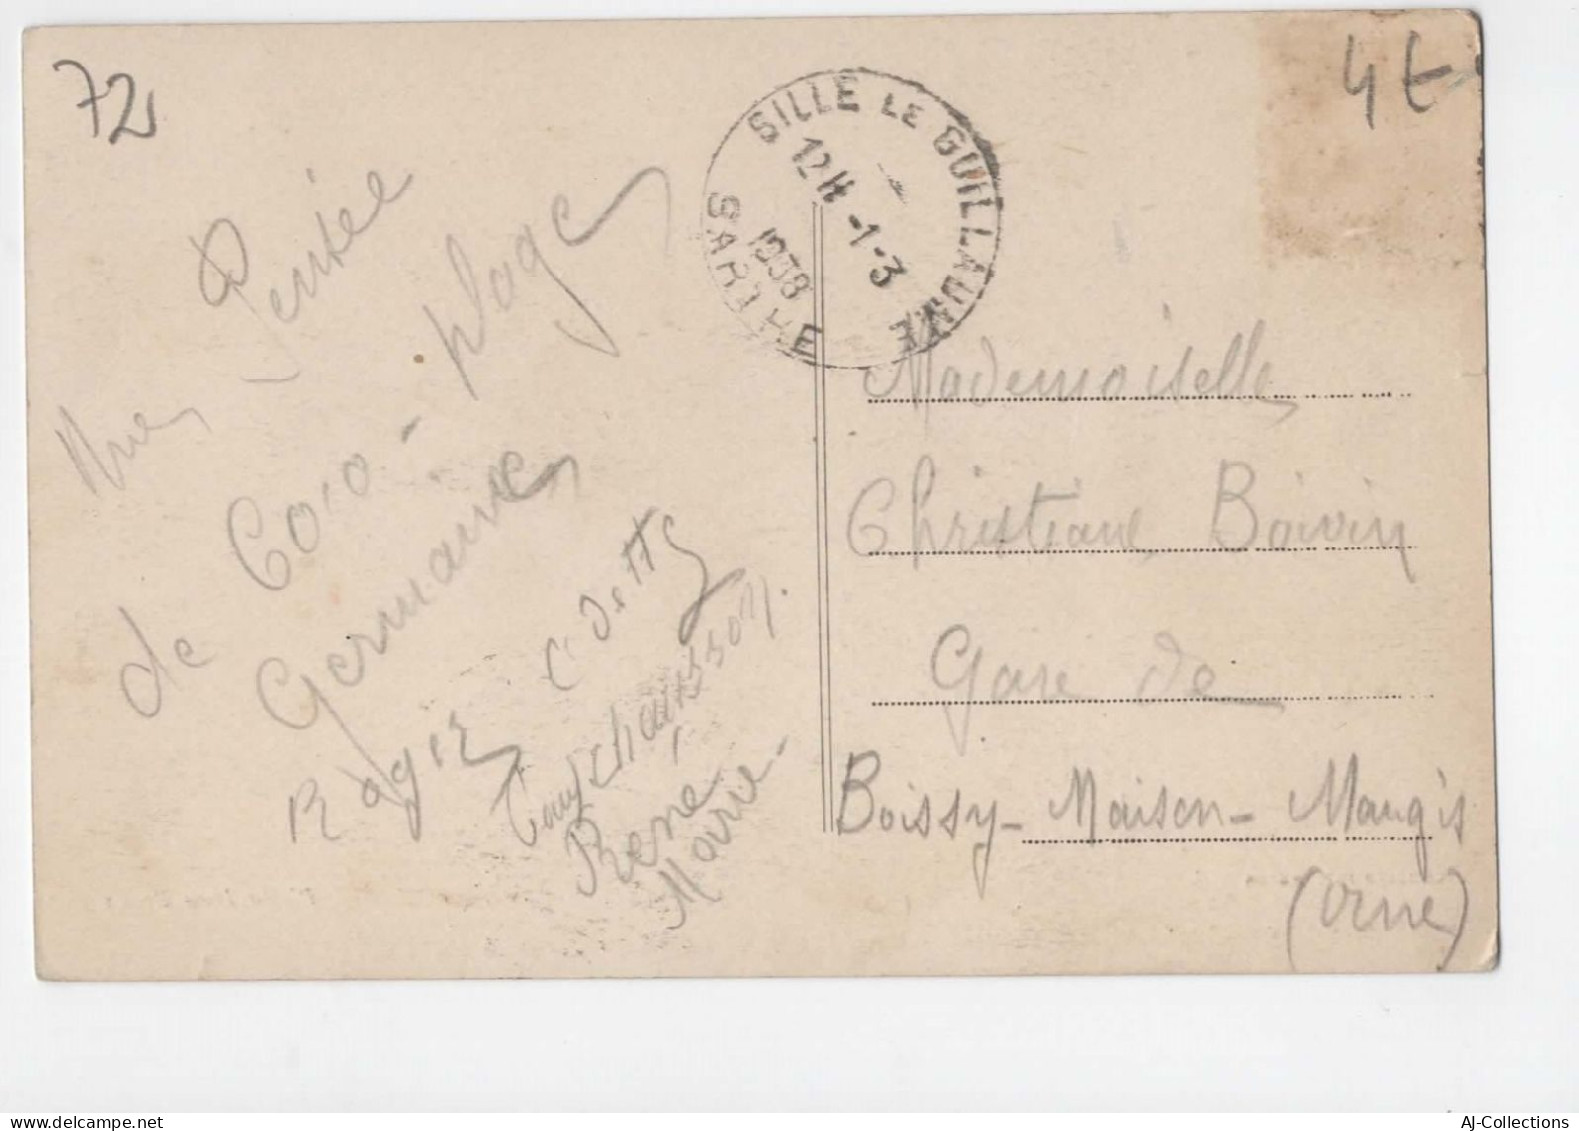 72
4€
SILLE LE GUILLAUME
12H
-1-3
1938
SARTHE
Une Pensée
de Coco-plage
Germaine
Odette
Roger
René
Marie-
Mademoiselle
Christiane Boivin
Gare de
Boissy-Maison-Maugis
(Orne)
AJ-Collections